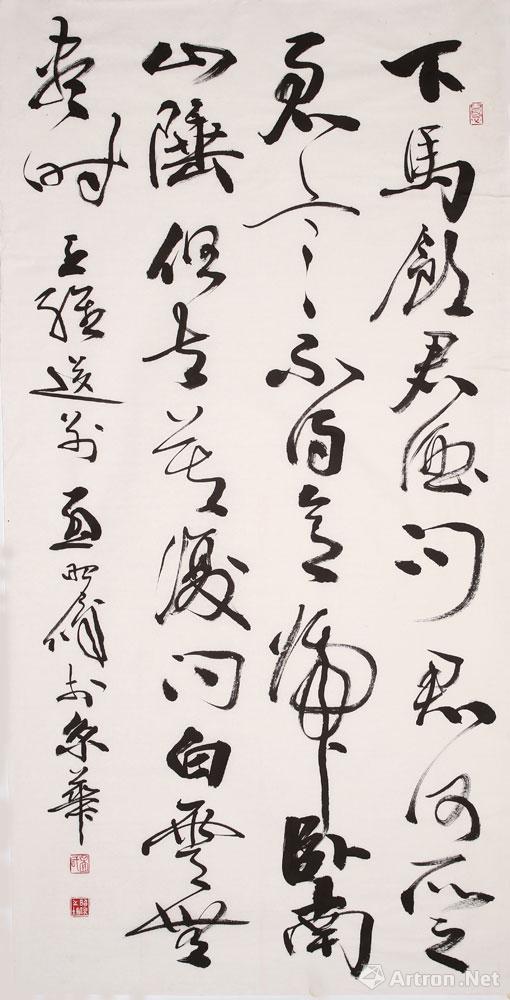 下馬飲君酒問君何所之
君言不得意歸卧南
山陲但去莫復問白雲無
盡時
王維送別 於京華
Artron.Net